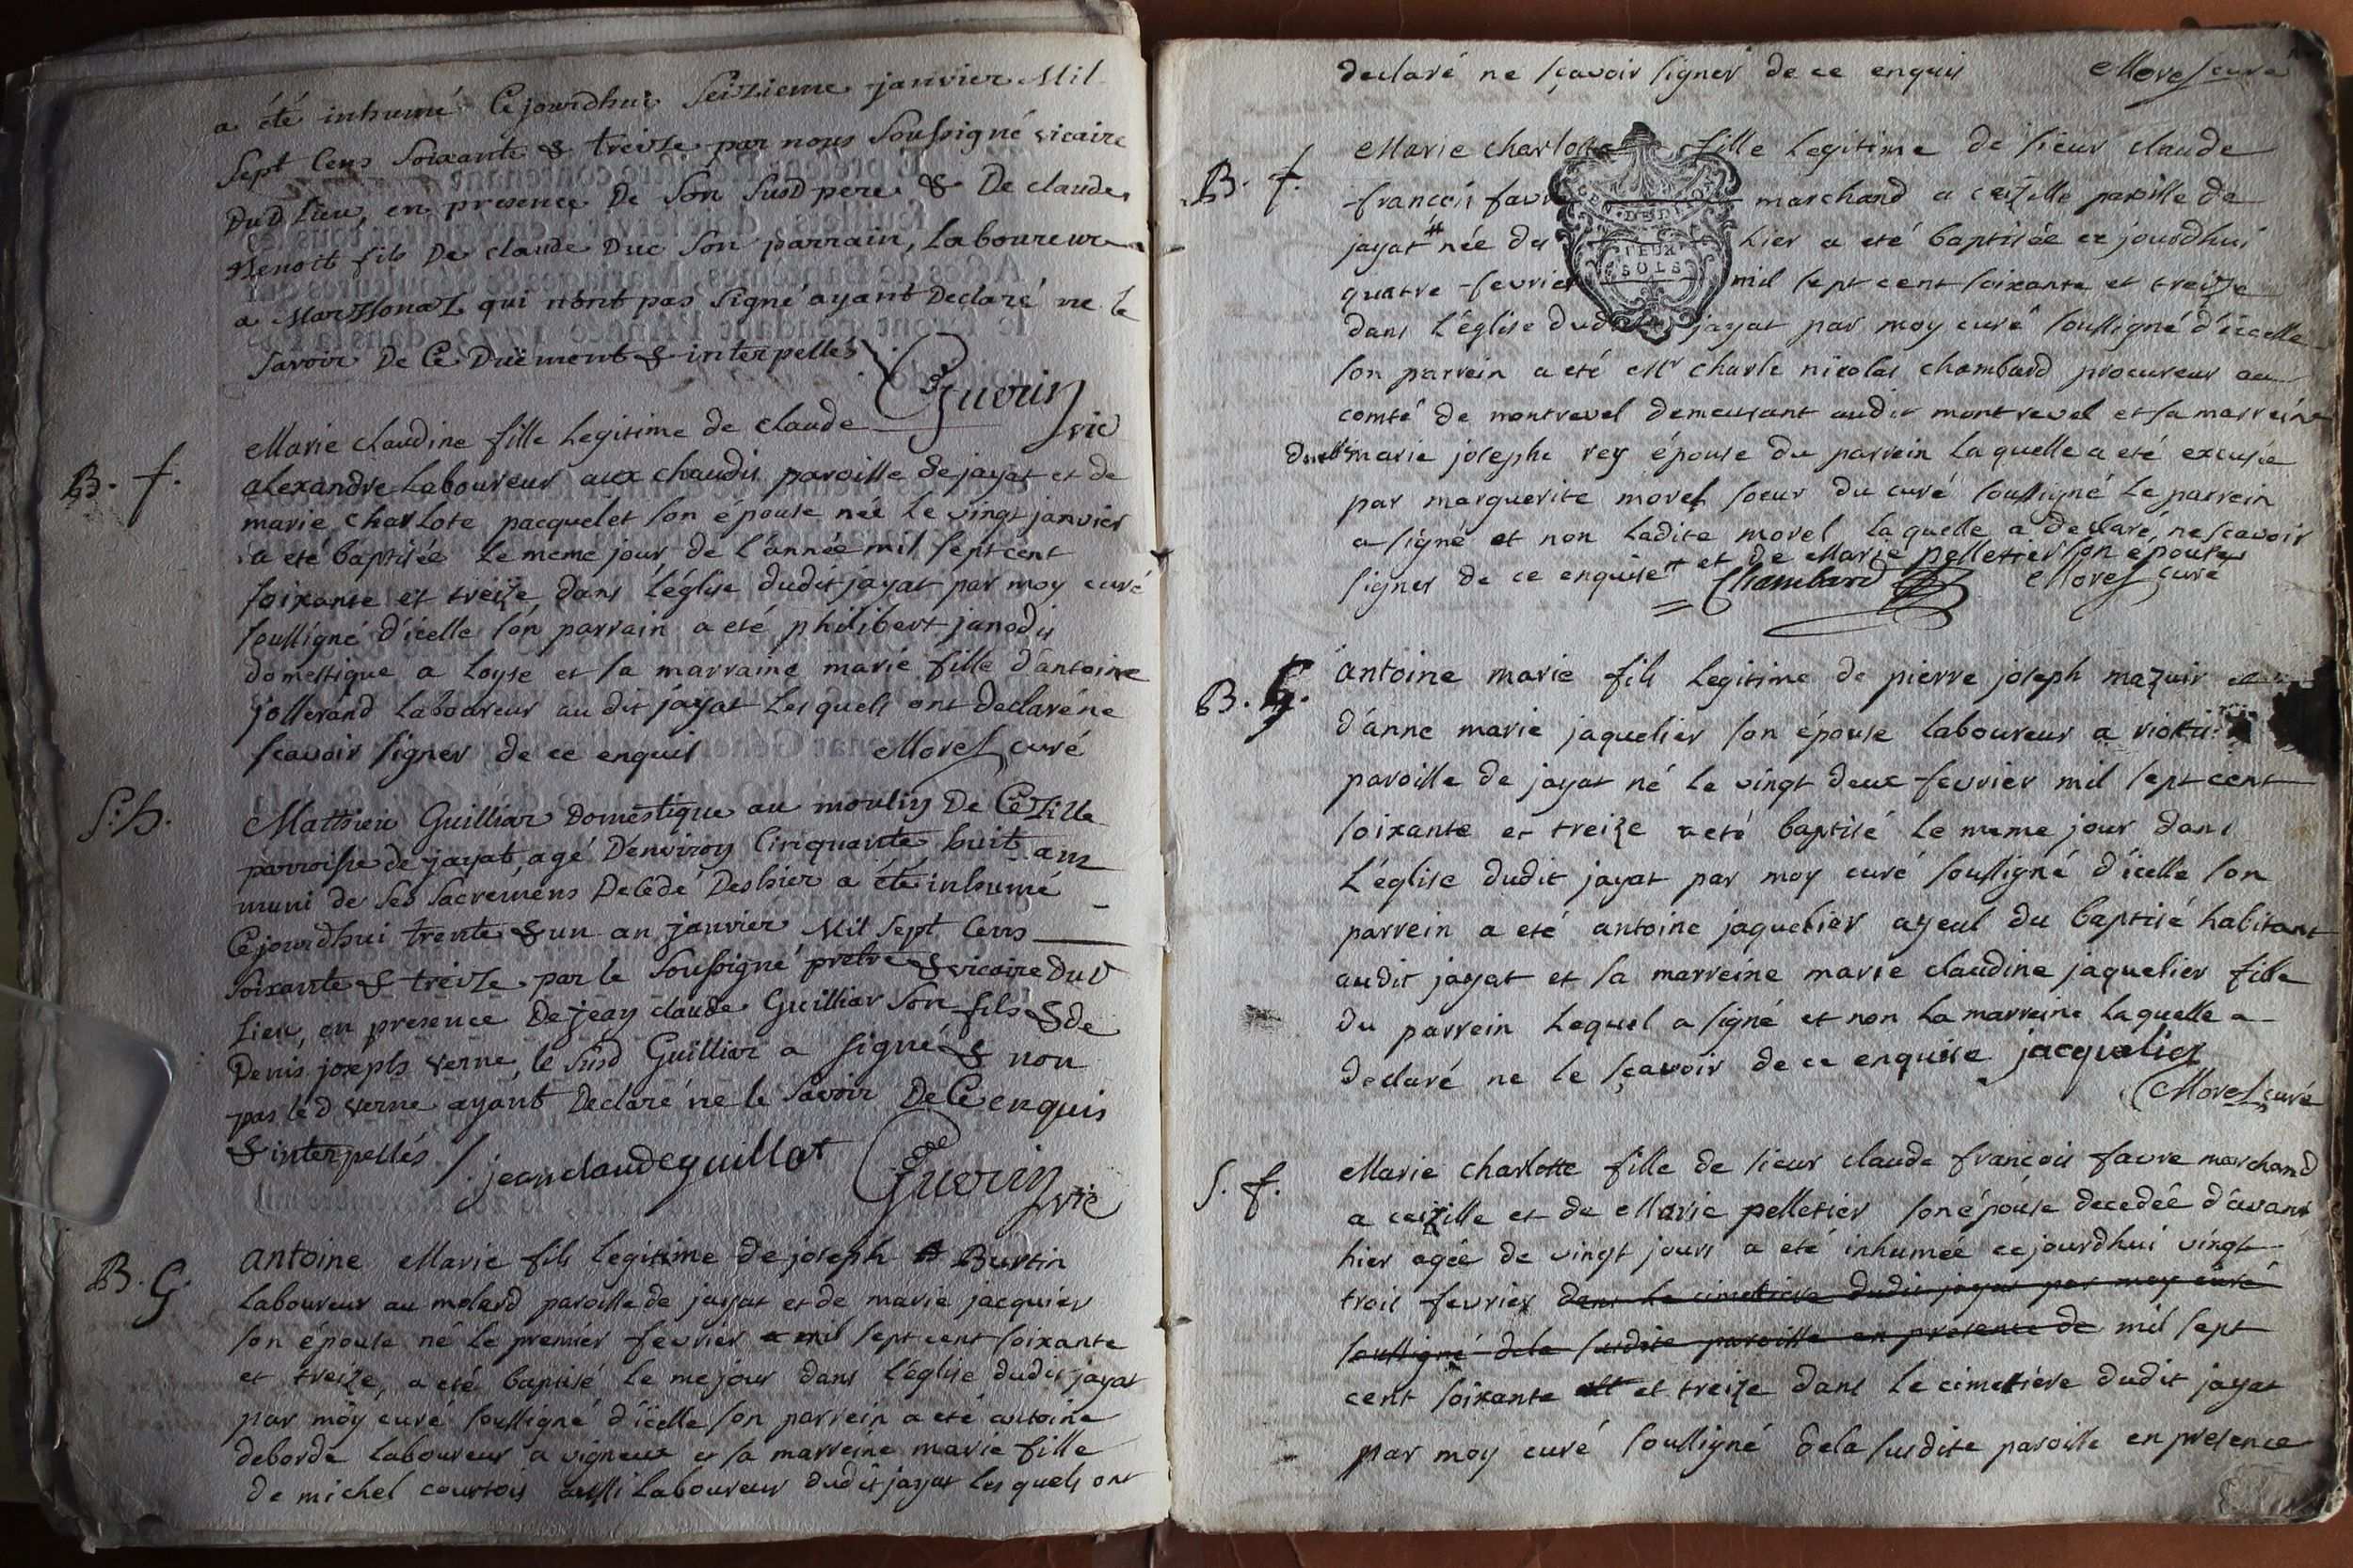 a été inhumé Cejourdhui Seizieme janvier Mil
Sept Cens Soixante & treize par nous Soussigné vicaire
Dud Lieu, en presence De Son Susd pere & De claude
Benoit fils De claude Duc Son parrain, laboureur
a Marssonaz qui n'ont pas Signé ayant Declaré ne le
Savoir De Ce Duëment & interpellés
Guerin vic
B. f.
Marie claudine fille legitime de claude
alexandre laboureur aux chaudis paroisse de jayat et de
marie charlote pacquelet son épouse née le vingt janvier
a eté baptisée le meme jour de l'année mil sept cent
soixante et treize dans l'église dudit jayat par moy curé
soussigné d'icelle son parrain a eté philibert janodis
domestique a loyse et sa marraine marie fille d'antoine
jollerand laboureur audit jayat lesquels ont declaré ne
scavoir signer de ce enquis Morel curé
S. h.
Matthieu Guilliar Domestique au moulin De Cézille
parroisse de jayat, agé D'environ Cinquante huit ans
muni de ses Sacremens Decédé Deshier a été inhumé
Cejourdhui trente & un an janvier Mil Sept Cens
Soixante & treize par le Soussigné pretre & vicaire Dud
Lieu, en presence De jean claude Guilliar Son fils & de
Denis joseph verne, le Susd Guilliar a signé & non
pas led verne ayant Declaré ne le Savoir De Ce enquis
& interpellés jeanclaudeguillot Guerin vic
B. G.
antoine Marie fils legitime de joseph Burtin
laboureur au molard paroisse de jayat et de marie jacquier
son épouse né le premier fevrier mil sept cent soixante
et treize, a eté baptisé le me jour dans l'église dudit jayat
par moy curé soussigné d'icelle son parrein a eté antoine
deborde laboureur a vigneux et sa marreine marie fille
de michel courtois aussi laboureur dudit jayat lesquels ont
declaré ne sçavoir signer de ce enquis Morel curé
B. f.
Marie charlotte fille legitime de sieur claude
françois favre marchand a ceizille paroisse de
jayat # née du hier a eté baptisée ce jourdhui
quatre fevrier mil sept cent soixante et treize
DEUX
SOLS
dans l'église dudit jayat par moy curé soussigné d'icelle
son parrein a eté Mr charle nicolas chambard procureur au
comté de montrevel demeurant audit montrevel et sa marreine
marie josephe rey épouse du parrein laquelle a eté excusée
par marguerite morel soeur du curé soussigné le parrein
a signé et non ladite morel laquelle a declaré ne scavoir
signer de ce enquise # et de Marie pelletier son épouse
Chambard Morel curé
B. G.
antoine marie fils legitime de pierre joseph mazuir et
d'anne marie jaquelier son épouse laboureur a
paroisse de jayat né le vingt deux fevrier mil sept cent
soixante et treize a eté baptisé le meme jour dans
l'église dudit jayat par moy curé soussigné d'icelle son
parrein a eté antoine jaquelier ayeul du baptisé habitant
audit jayat et sa marreine marie claudine jaquelier fille
du parrein lequel a signé et non la marreine laquelle a
declaré ne le sçavoir de ce enquise jacquelier
Morel curé
S. f.
Marie charlotte fille de sieur claude françois favre marchand
a ceizille et de Marie pelletier son épouse decedée d'avant
hier agée de vingt jours a eté inhumée ce jourdhui vingt
trois fevrier dans le cimetiere dudit jayat par moy curé
soussigné dela susdite paroisse en presence de mil sept
cent soixante et treize dans le cimetière dudit jayat
par moy curé soussigné dela susdite paroisse en presence